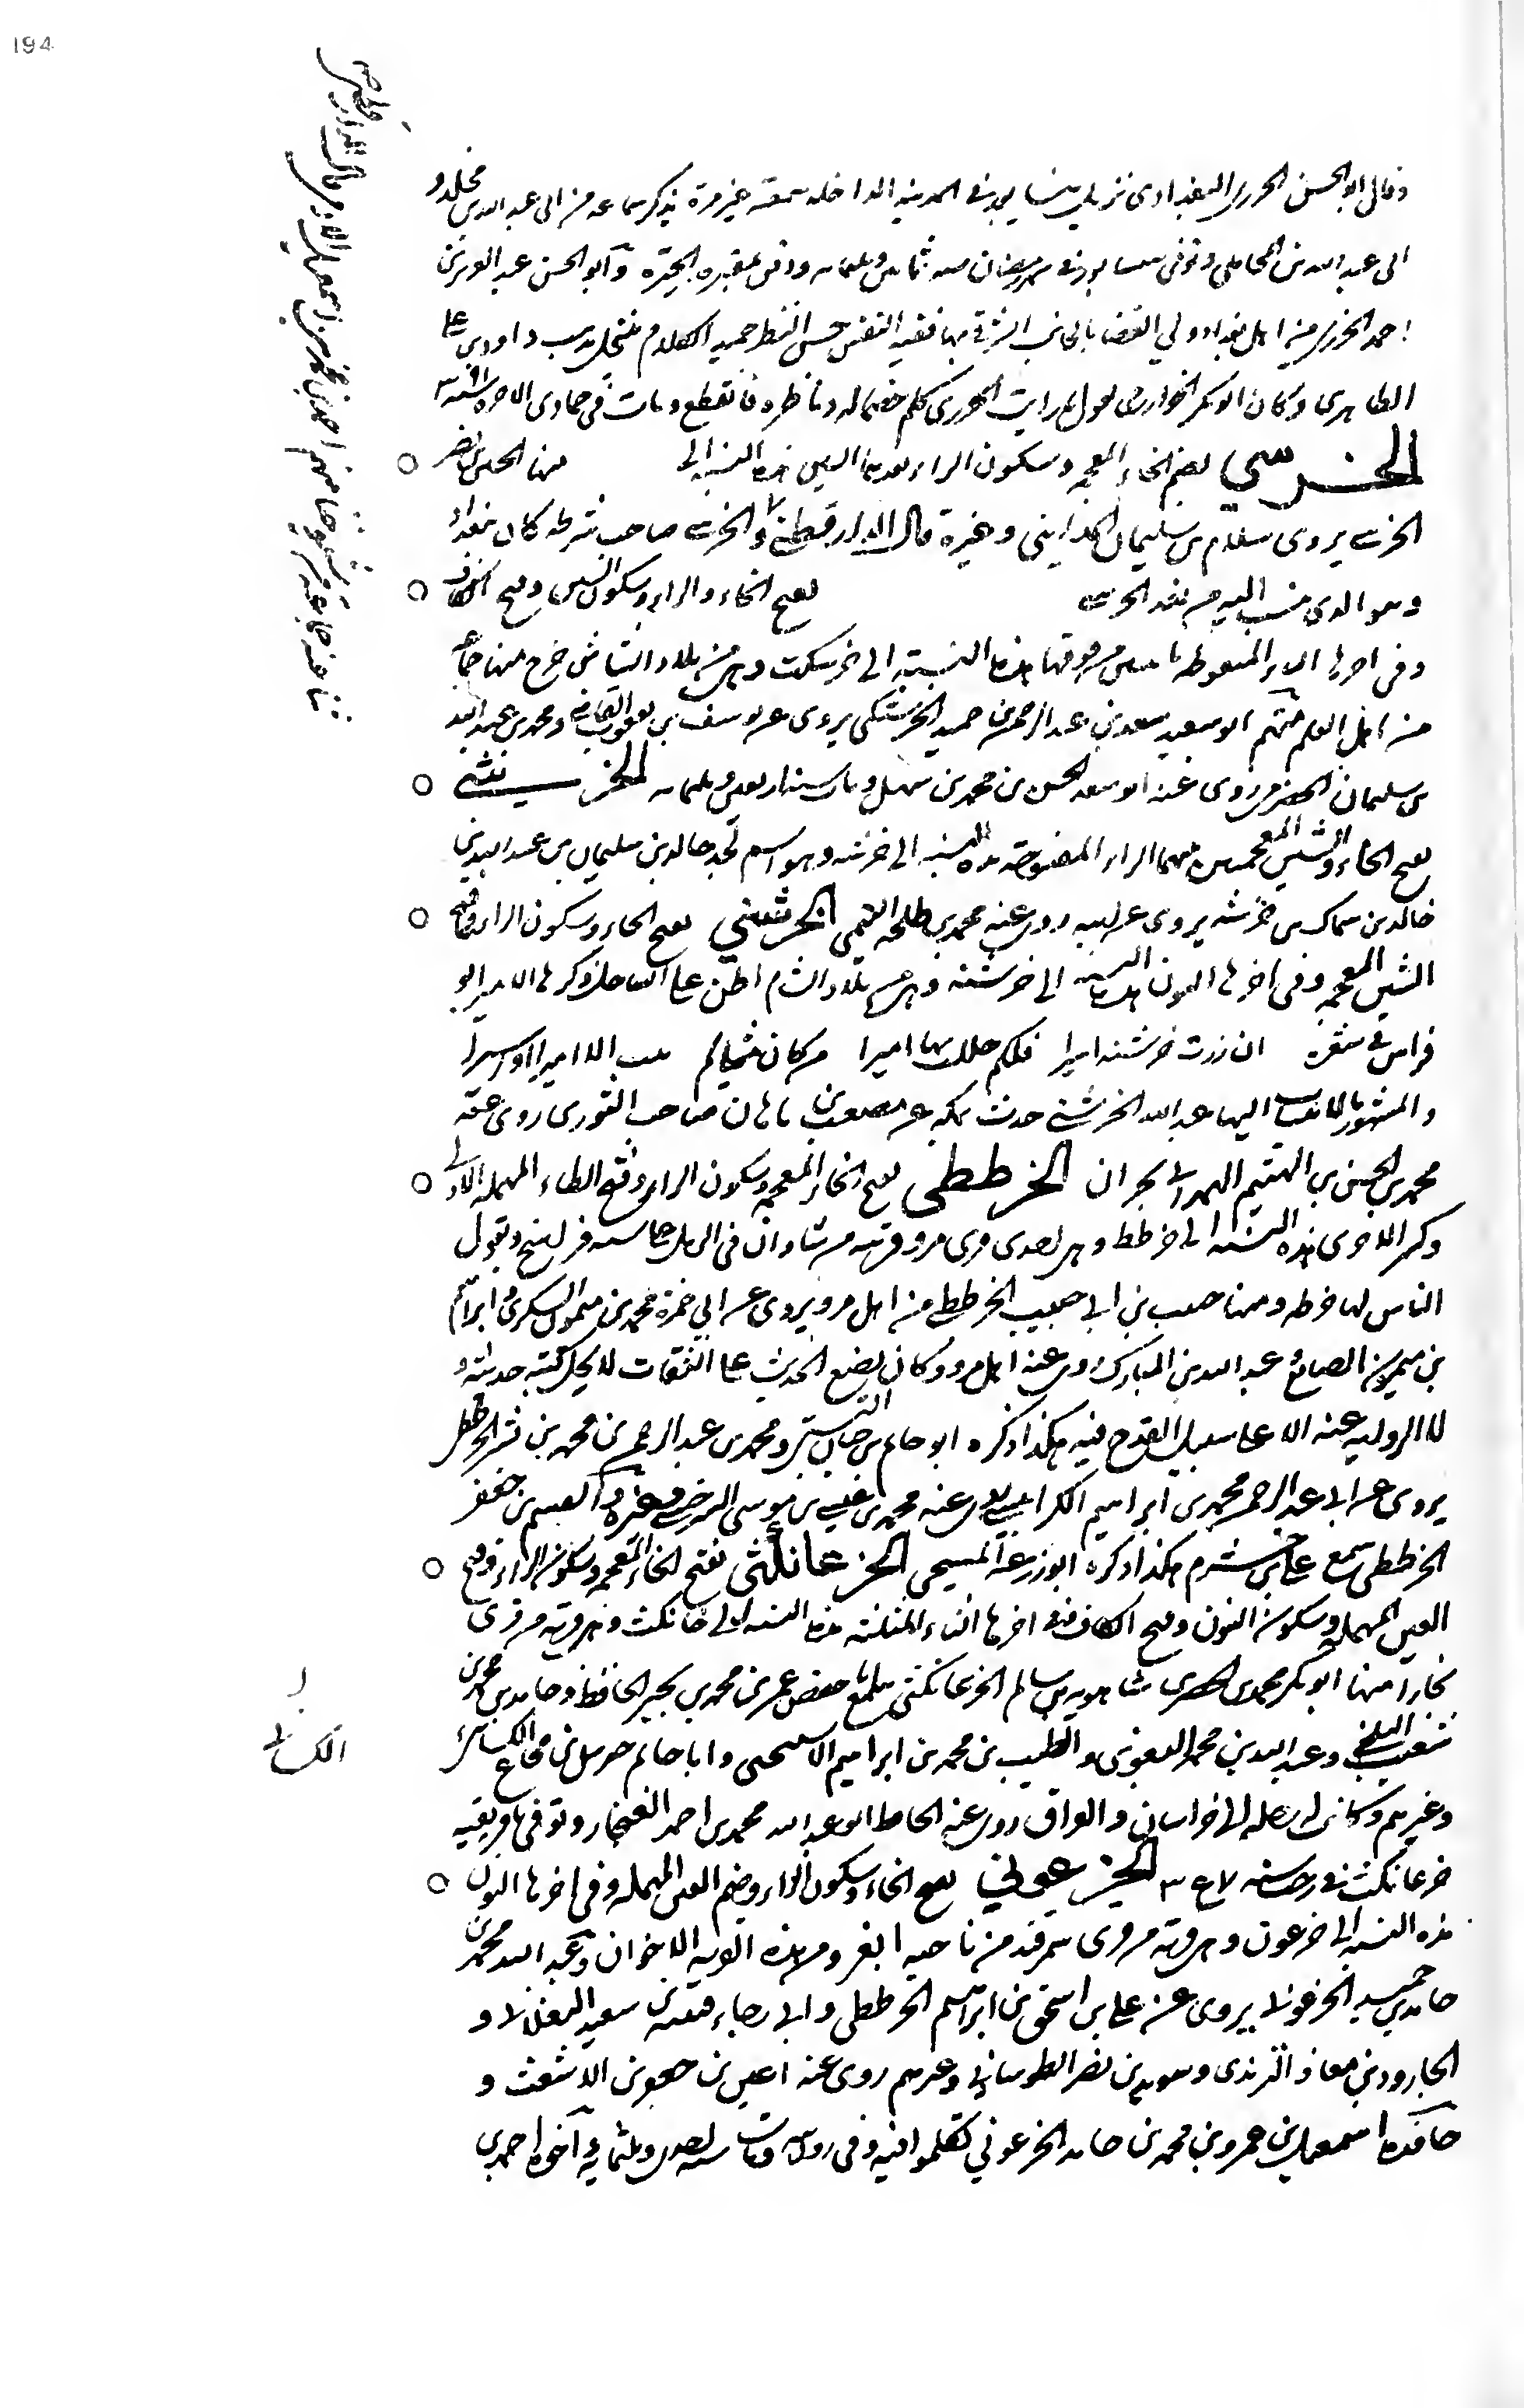 194
وقال ابو الحسن الخرزي البغدادي نزيل نيسابور في المدينة الداخلة سمعته غير مرة يذكر سماعه من ابي عبد الله بن مخلد و
ابي عبد الله بن المحاملي وتوفي بنيسابور في رمضان سنة ثمانين وثلثمائة ودفن بمقبرة الحيرة وابو الحسن عبد العزيز بن
احمد الخرزي من اهل بغداد ولي القضا بالجانب الشرقي بها فقيه النفس حسن النظر جيد الكلام ينتحل مذهب داود بن علي
الظاهري وكان ابو بكر الخوارزمي يقول ما رايت الخرزي كلم خصما له وناظره فانقطع ومات في جمادى الاخرة سنة ٣٩١
الخرسي بضم الخاء المعجمة وسكون الراء بعدهما السين هذه النسبة الى منها الحسين بن نصر
الخرسي يروي سلام بن سليمان المدايني وغيره قال الدارقطني والخرسي صاحب شرطة كان ببغداد
وهو الذي ينسب اليه مربعة الخرسي بفتح الخاء والراء وسكون السين وفتح الكاف
وفي اخرها التاء المنقوطة باثنتين من فوقها هذه النسبة الى خرسكت وهي من بلاد الشاش خرج منها جماعة
من اهل العلم منهم ابو سعيد سعد بن عبد الرحمن بن حميد الخرسكتي يروي عن يوسف بن يعقوب القاضي ومحمد بن عبد الله
بن سليمان الحضرمي روى عنه ابو سعد الحسن بن محمد بن سهل ومات سنة اربعين وثلثمائة الخرشي
بفتح الخاء والشين المعجمتين بينهما الراء المفتوحة هذه النسبة الى خرشة وهو اسم لجد خالد بن سليمان بن عبد الله بن
خالد بن سماك بن خرشة يروي عن ابيه روى عنه محمد بن طلحة التيمي الخرشني بفتح الخاء وسكون الراء وفتح
الشين المعجمة وفي اخرها النون هذه النسبة الى خرشنة وهي من بلاد الشام اظن على الساحل ذكرها الامير ابو
فراس في شعره ان زرت خرشنة اسيرا فلكم حللت بها اميرا من كان مثلي لم يبت الا اميرا او اسيرا
والمشهور بالانتساب اليها عبد الله الخرشني حدث بمكة عن مصعب بن ماهان صاحب الثوري روى عنه
محمد بن الحسن بن الهيثم الهمداني بحران الخرططي بفتح الخاء المعجمة وسكون الراء وفتح الطاء المهملة الاولى
وكسر الاخرى هذه النسبة الى خرطط وهي احدى قرى مرو قريبة من شاوان في الرمل على خمسة فراسخ ويقول
الناس لها خرطة ومنها حبيب بن ابي حبيب الخرططي من اهل مرو يروي عن ابي حمزة محمد بن ميمون السكري وابراهيم
بن ميمون الصائغ وعبد الله بن المبارك روى عنه اهل مرو وكان يضع الحديث على الثقات لا يحل كتبة حديثه و
لا الرواية عنه الا على سبيل القدح فيه هكذا ذكره ابو حاتم بن حبان البستي ومحمد بن عبد الرحيم بن محمد بن بشر الخرططي
يروي عن ابي عبد الرحمن محمد بن ابراهيم الكرابيسي روى عنه محمد بن عيسى بن موسى السرخسي وغيره والقسم بن جعفر
الخرططي سمع علي بن خشرم هكذا ذكره ابو زرعة المسيحي الخرعانكثي بفتح الخاء المعجمة وسكون الراء وفتح
العين المهملة وسكون النون وفتح الكاف وفي اخرها الثاء المثلثة هذه النسبة الى خرعانكث وهي قرية من قرى
بخارا منها ابو بكر محمد بن الخضر بن شاهويه بن سالم الخرعانكثي سمع ابا حفص عمر بن محمد بن بجير الحافظ وحامد بن محمد بن
شعيب البلخي وعبد الله بن محمد البغوي والطيب بن محمد بن ابراهيم الاستيخني وابا حاتم جبريل بن مجاع الكشاني
الكشاني
وغيرهم وكانت له رحلة الى خراسان والعراق روى عنه الحافظ ابو عبد الله محمد بن احمد الغنجار وتوفي بقرية
خرعانكث في رجب سنة ٣٤٧ الخرعوني بفتح الخاء وسكون الراء وضم العين المهملة وفي اخرها النون
هذه النسبة الى خرعون وهي قرية من قرى سمرقند من ناحية ابغر ومن هذه القرية الاخوان ابو عبد الله محمد بن
حامد بن حميد الخرعوني يروي عن علي بن اسحق بن ابراهيم الخرططي وابي رجاء قتيبة بن سعيد البغلاني و
الجارود بن معاذ الترمذي وسويد بن نصر الطوساني وغيرهم روى عنه اعين بن جعفر بن الاشعث و
حافده اسمعيل بن عمرو بن محمد بن حامد الخرعوني تكلموا فيه وفي روايته ومات سنة احدى وثلثمائة واخوه احمد بن